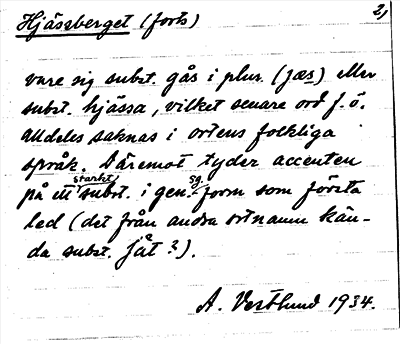 Hjässberget (forts)
2,
vare sig subst. gås i plur. (jæs) eller
subst. hjässa, vilket senare ord f. ö.
alldeles saknas i ortens folkliga
språk. Däremot tyder accenten
på ett starkt subst. i gen. sg. form som första
led (det från andra ortnamn kän-
da subst. jåt ?).
A. Vestlund 1934.